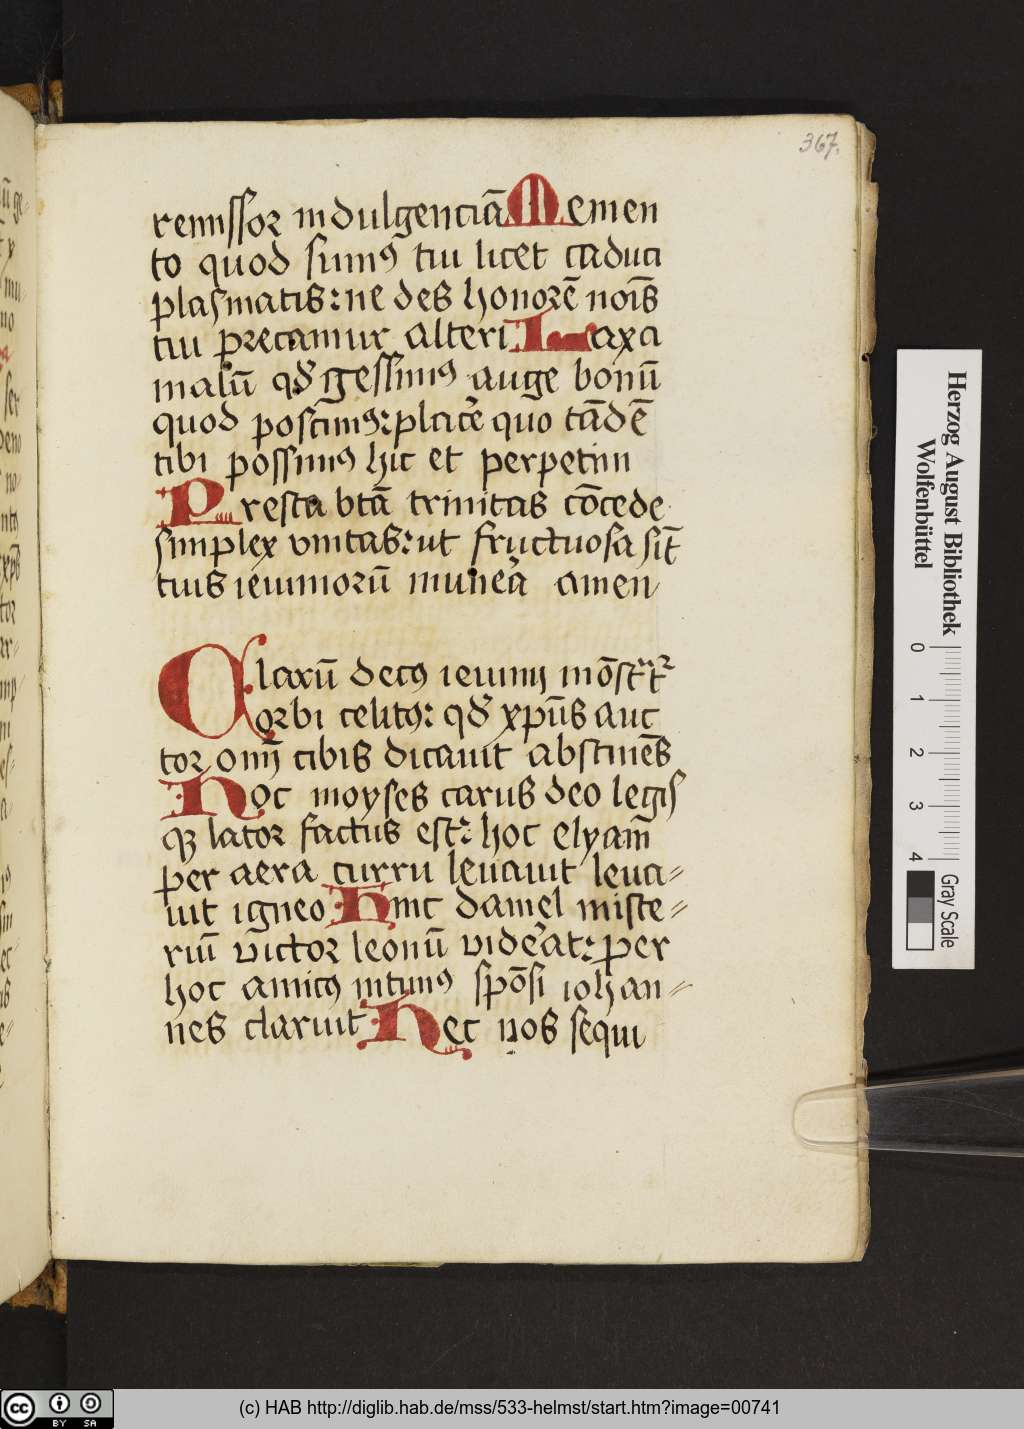 367.
remissor indulgenciā Memen
to quod sumꝰ tui licet caduci
plasmatis: ne des honorē noīs
tui precamur alteri Laxa
malū qđ gessimꝰ auge bonū
quod poscimꝰ: placē quo tādē
tibi possimꝰ hic et perpetim
Presta btā trinitas cōcede
simplex vnitas: ut fructuosa sīt
tuis ieiuniorū munēa amen
Clarū decꝰ ieiunij mōstrat
orbi celitꝰ: qđ xp̄us auc
tor omī cibis dicauit abstinēs
Hoc moyses carus deo legis
qꝫ lator factus est: hoc elyam̄
per aera curru leuauit leua-
uit igneo Hinc daniel miste-
riū victor leonū vidēat: per
hoc amicꝰ intimꝰ spōsi iohan-
nes claruit Hec nos sequi
Herzog August Bibliothek
Wolfenbüttel
0 1 2 3 4
Gray Scale
cc BY SA
(c) HAB http://diglib.hab.de/mss/533-helmst/start.htm?image=00741